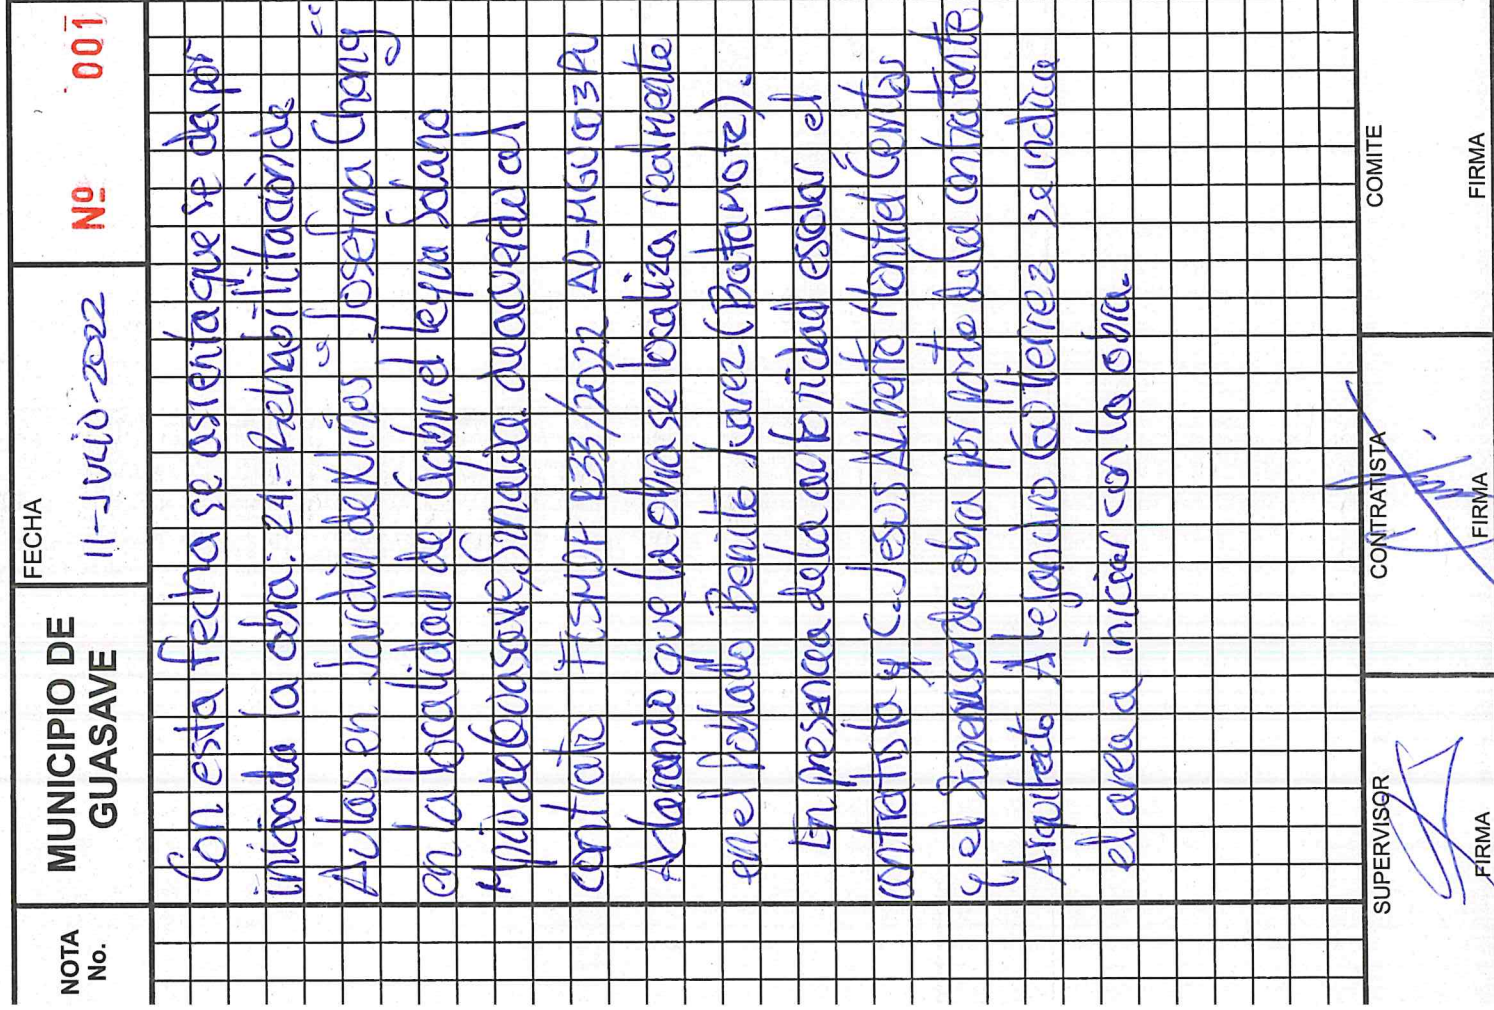 NOTA No.
MUNICIPIO DE GUASAVE
FECHA
11-JULIO-2022
Nº 001
Con esta fecha se asienta que se da por
iniciada la obra: 24.- Rehabilitación de
Aulas en Jardin de Niños "Josefina Chong"
en la localidad de Gabriel Leyva Solano
Mpio de Guasave, Sinaloa. de acuerdo al
contrato FISMDF R33/2022 AD-MGU003PU
Aclarando que la obra se localiza realmente
en el Poblado Benito Juarez (Batamote).
En presencia de la autoridad escolar el
contratista y C. Jesus Alberto Montiel
y el Supervisor de obra por parte de la contratante
Arquitecto Alejandro Gutierrez se indica
el area a iniciar con la obra.
SUPERVISOR
FIRMA
CONTRATISTA
FIRMA
COMITE
FIRMA